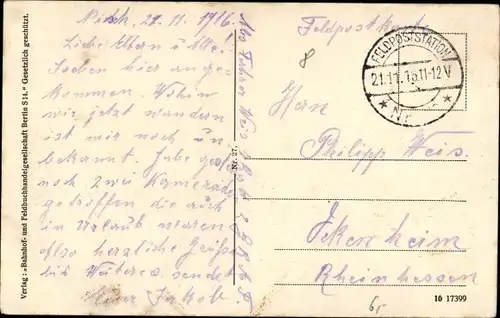 Nisch, 21.11.1916.
Liebe Eltern u Alle!
Soeben hier ange-
kommen. Wohin
wir jetzt wandern
ist mir noch un
bekannt. Habe
noch zwei Kamerad
getroffen die auch
in Urlaub waren
also herzliche Grüße
bis Weiteres sendet
Euer Jakob
Verlag: „Bahnhof- und Feldbuchhandelgesellschaft Berlin S 14.“ Gesetzlich geschützt.
Nr. 27.
Feldpostkarte
8
FELDPOSTSTATION
21.11.16.11-12V
* Nr. *
Herrn
Philipp Weis.
Jckenheim
Rheinhessen
16 17399